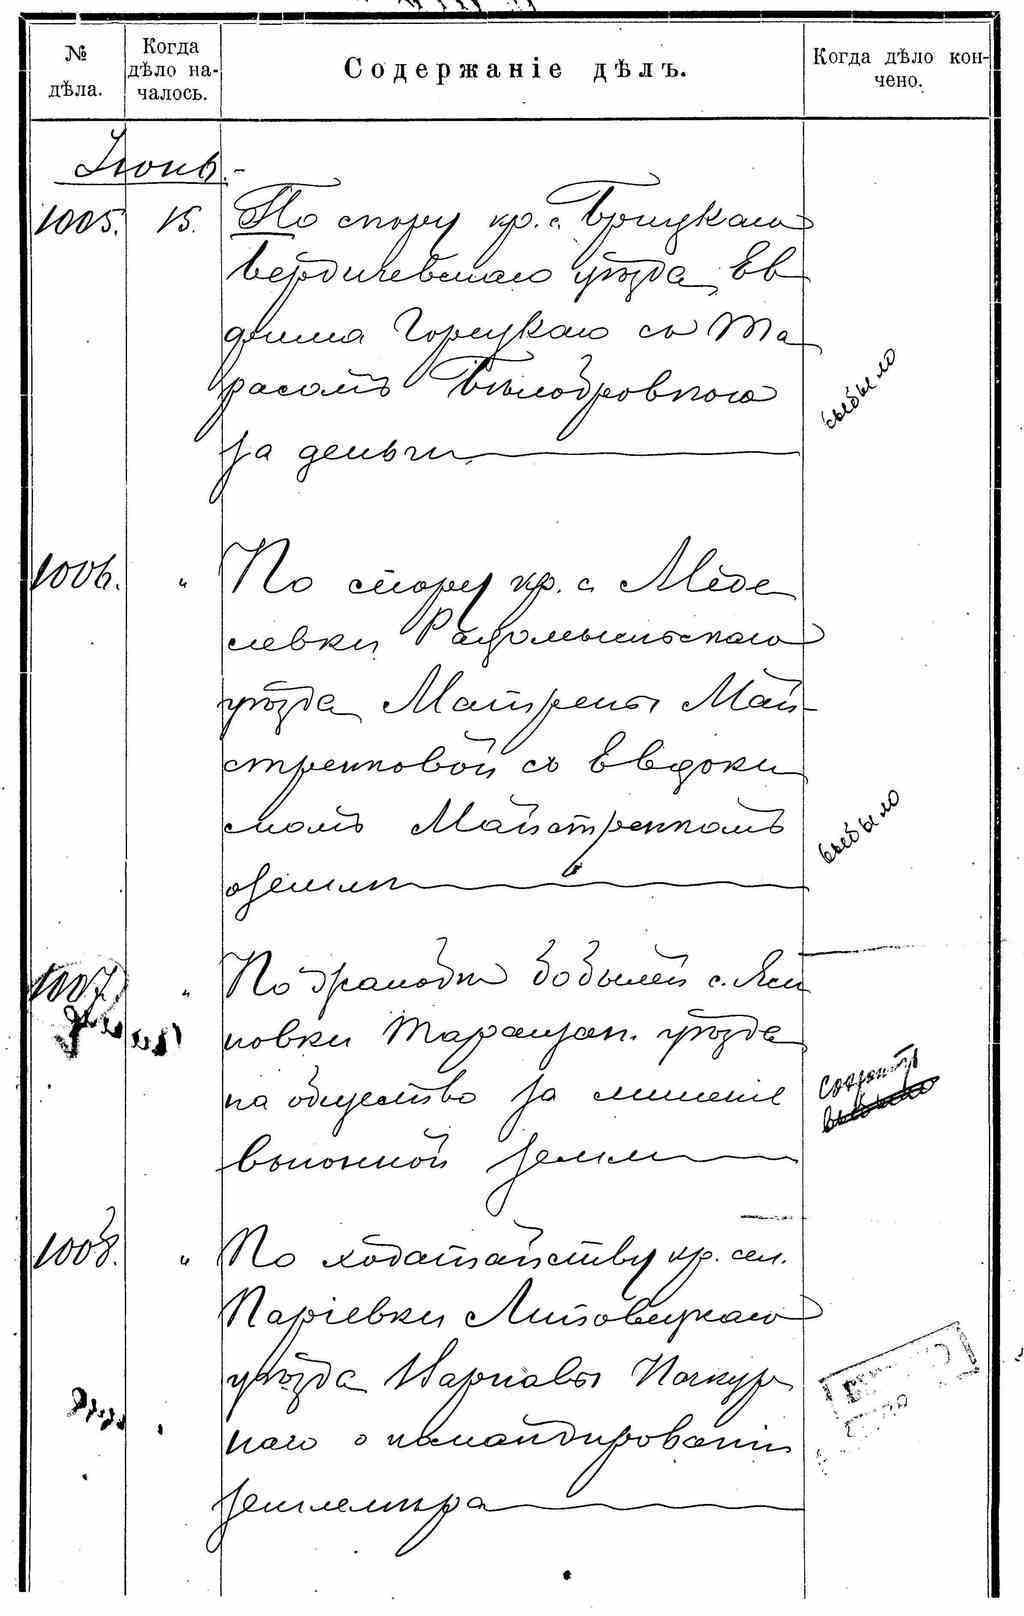 № дѣла.
Когда дѣло началось.
Содержаніе дѣлъ.
Когда дѣло кончено.
Июнь.
1005. 15. По спору кр. с.
Бердичевскаго уѣзда Ев
фима Горецкаго со Та
расомъ
за деньги
выбыло
1006. " По спору кр. с. Меде
левки Радомысльскаго
уѣзда Матрены Май-
стренковой съ Евдоки
момъ Майстренкомъ
о землѣ
выбыло
1007. " По жалобѣ бобылей с. Яси
новки Таращан. уѣзда
на общество за лишеніе
выгонной земли
выбыло
1008. " По ходатайству кр. сел.
Паріевки Липовецкаго
уѣзда Варнавы
наго о командированіи
землемѣра